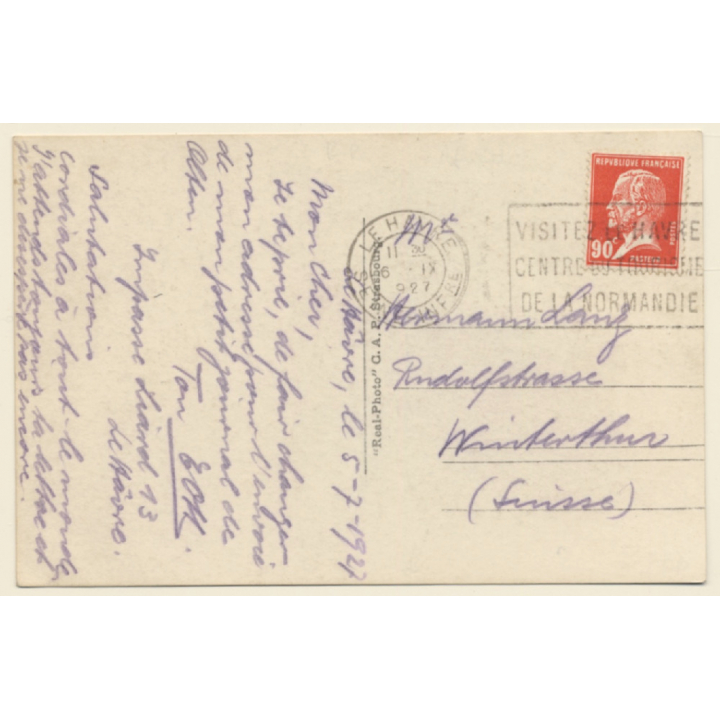 le Hâvre, le 5-7-1927
Mon Cher,
Je te prie, de fair changer
mon adresse pour l'envoie
de mon petit journal de
Olten.
Ton
Impasse Liard 13
Le Hâvre.
Salutations
cordiales à tout le monde
J'attends toujours ta lettre et
je ne desespère pas encore.
"Real-Photo" C. A. P. Strasbourg
LE HAVRE
11 30
6 IX
927
VISITEZ LE HAVRE
CENTRE DU TOURISME
DE LA NORMANDIE
REPVBLIQUE FRANÇAISE
90c
POSTES
PASTEUR
Mr
Hermann Lang
Rudolfstrasse
Winterthur
(Suisse)